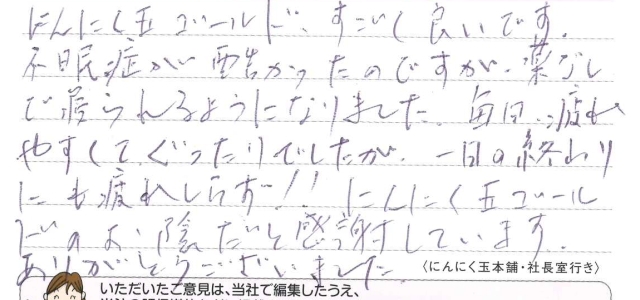 にんにく玉ゴールド、すごく良いです。
不眠症が酷かったのですが、薬なし
で寝られるようになりました。毎日、疲れ
やすくてぐったりでしたが、一日の終わり
にも疲れしらず!! にんにく玉ゴール
ドのお陰だと感謝しています。
ありがとうございました
〈にんにく玉本舗・社長室行き〉
いただいたご意見は、当社で編集したうえ、